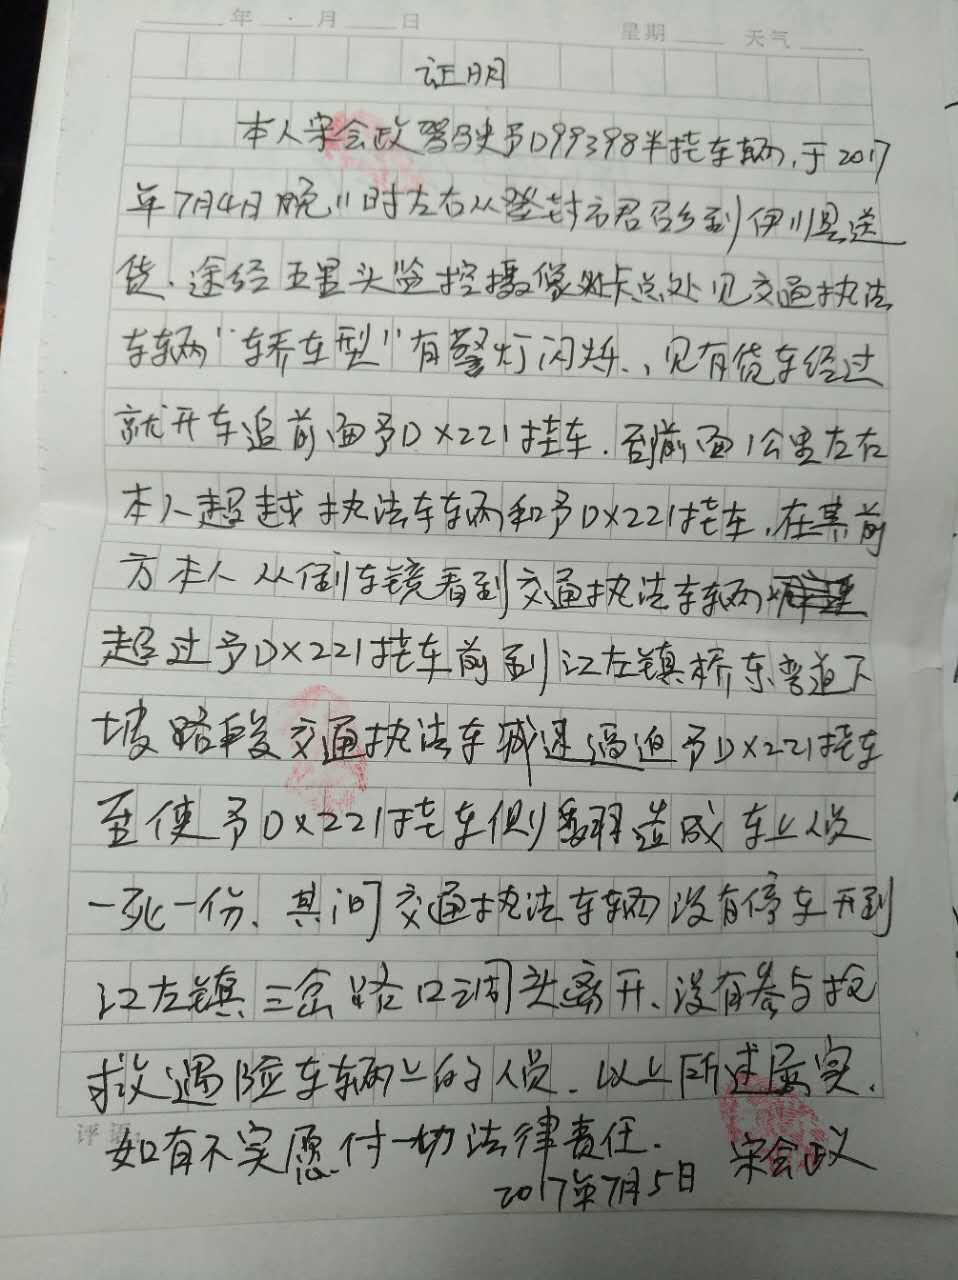 年 月 日 星期 天气
证明
本人宋会政驾驶予D99398半挂车辆,于2017
年7月4月晚11时左右从登封市君召乡到伊川县送
货.途经五里头监控摄像处卡点处见交通执法
车辆"轿车型"有警灯闪烁.,见有货车经过
就开车追前面予DX221挂车.到前面1公里左右
本人超越执法车辆和予DX221挂车,在其前
方本人从倒车镜看到交通执法车辆
超过予DX221挂车前到江左镇桥东弯道下
坡路段交通执法车减速逼迫予DX221挂车
至使予DX221挂车侧翻造成车上人员
一死一份.其间交通执法车辆没有停车开到
江左镇三岔路口调头离开、没有参与抢
救遇险车辆上的人员.以上所述属实.
评语:
如有不实愿付一切法律责任.
2017年7月5日 宋会政